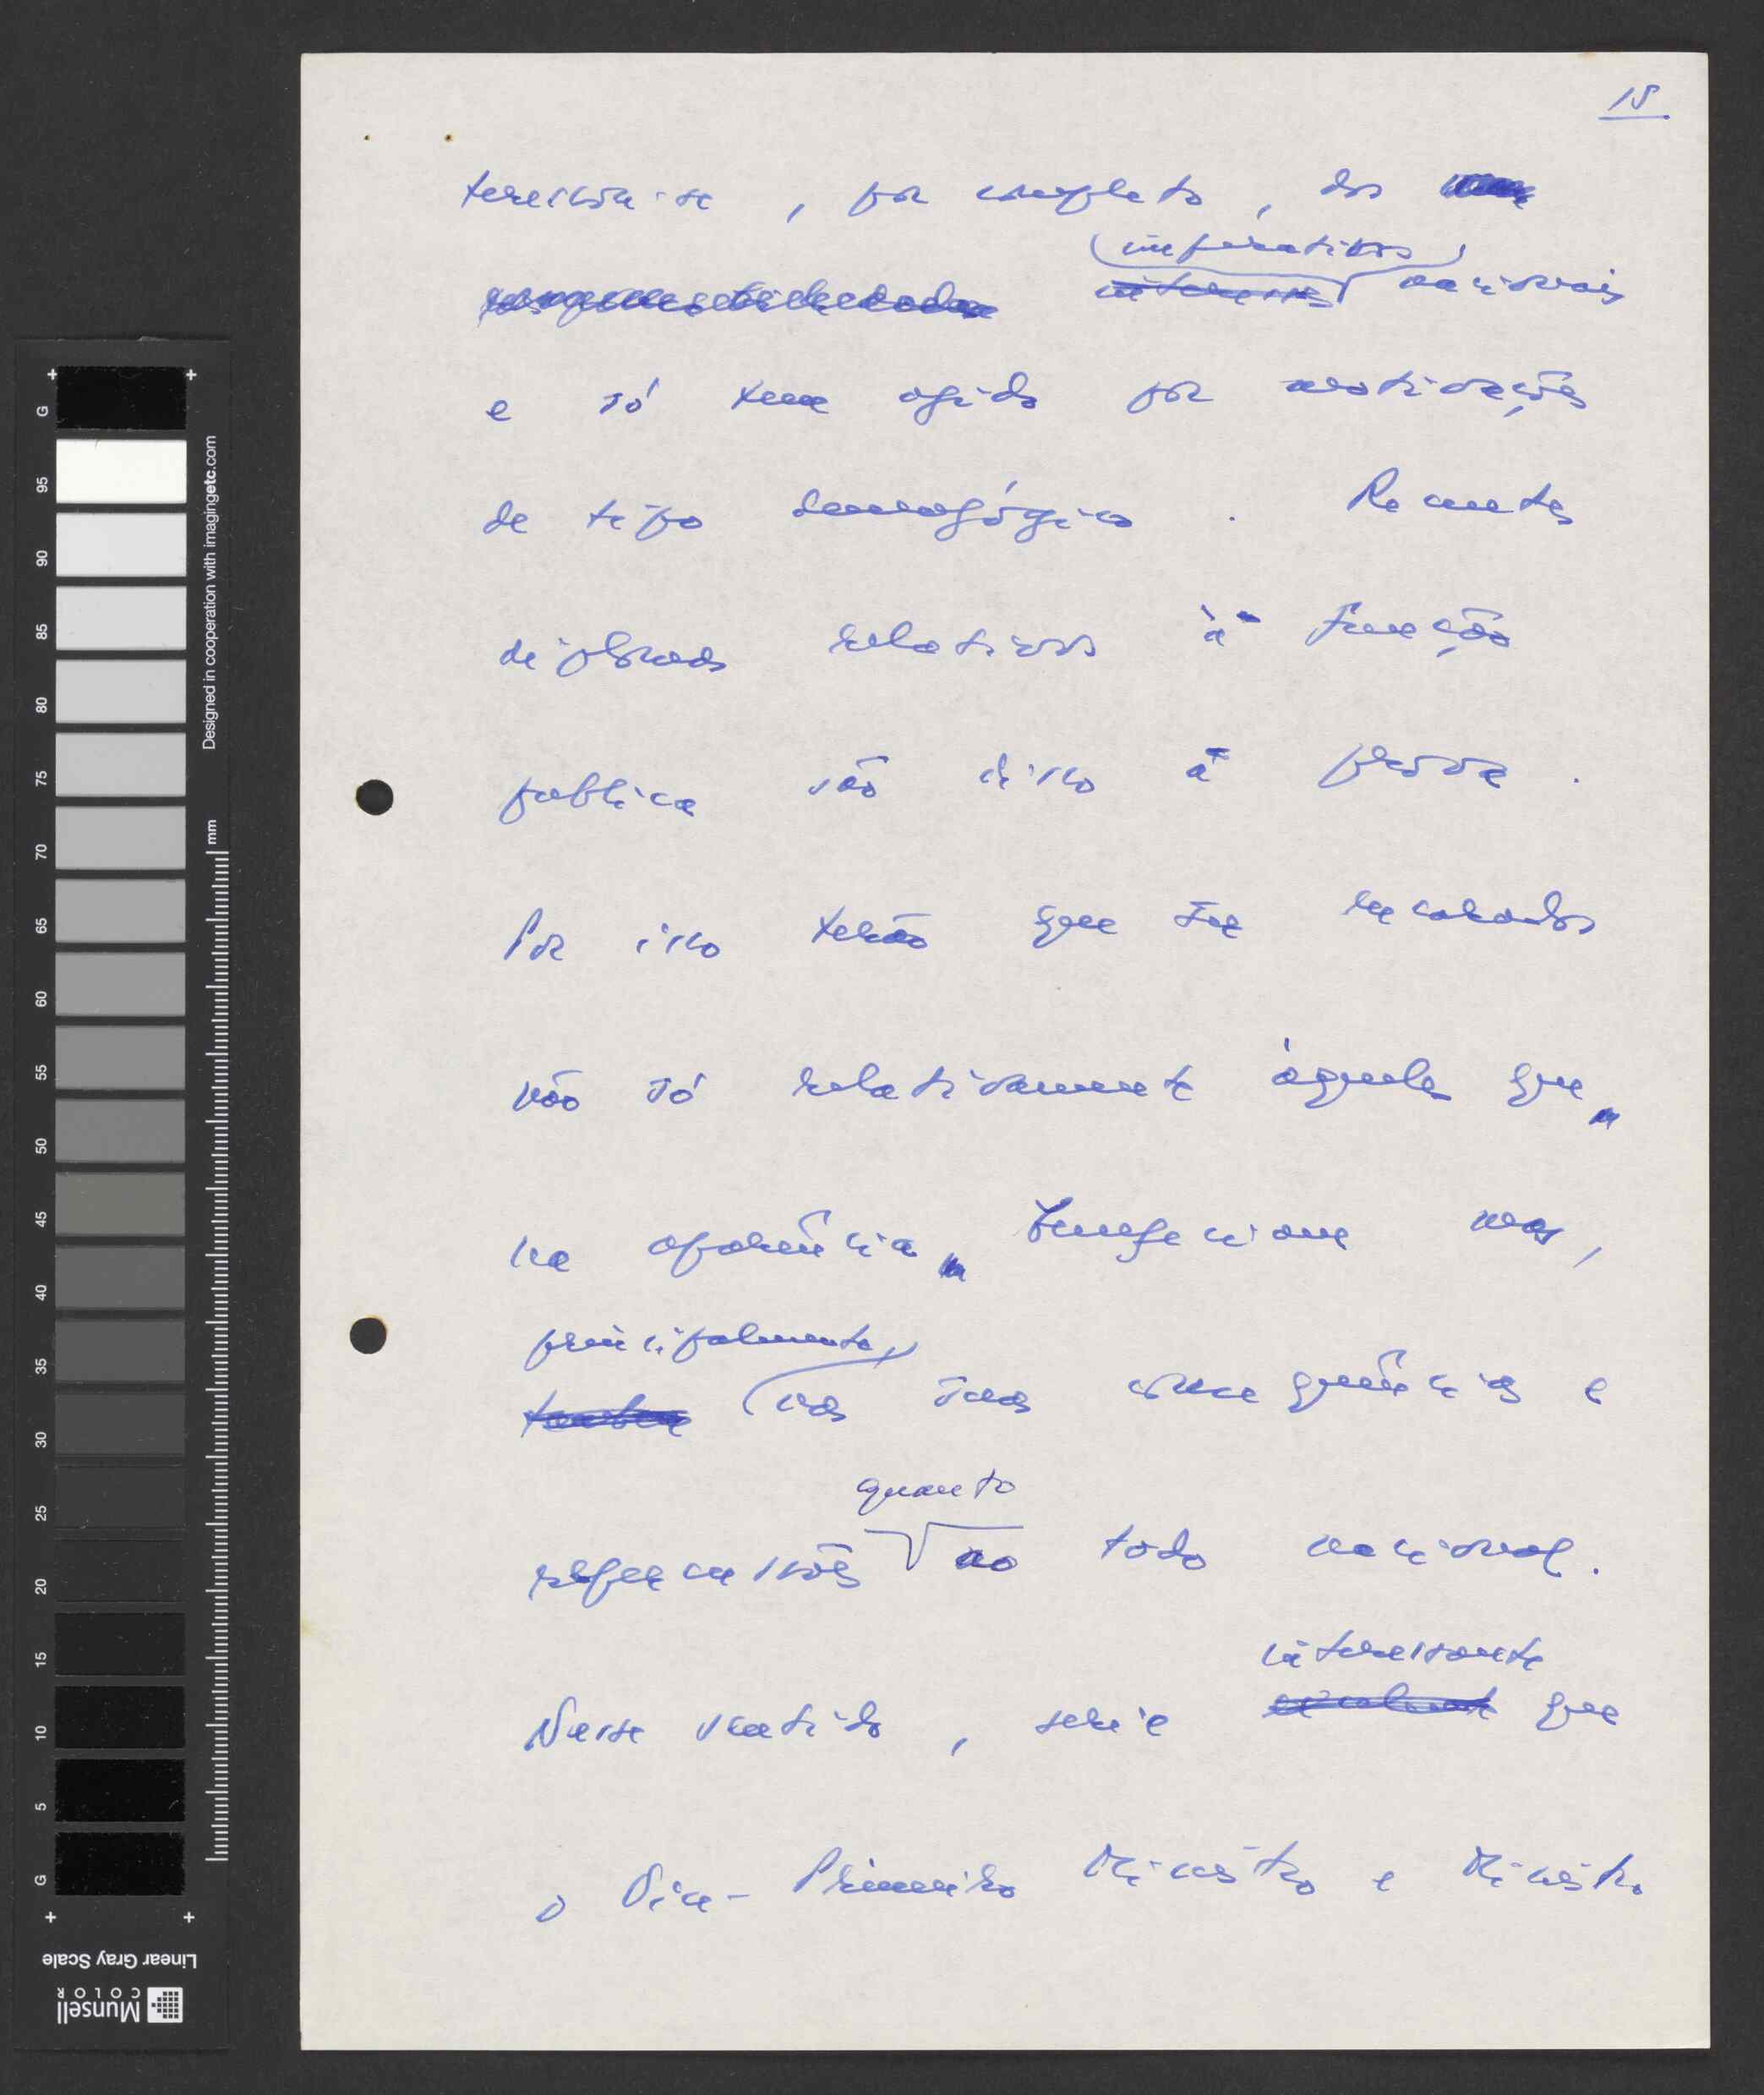 15
, por completo, dos
imperativos
interesses nacionais
e só tem agido por motivações
de tipo demagógico. Recentes
diplomas relativos à função
publica são disso a prova.
Por isso terão que ser encarados
não só relativamente àqueles que
na aparência beneficiam mas,
principalmente,
nas suas consequências e
quanto
repercussões ao todo nacional.
interessante
Nesse sentido, seria que
o Vice-Primeiro Ministro e Ministro
G
95
90
85
80
75
70
65
60
55
50
45
40
35
30
25
20
15
10
5
G
Designed in cooperation with imagingetc.com
mm
Linear Gray Scale
Munsell
COLOR